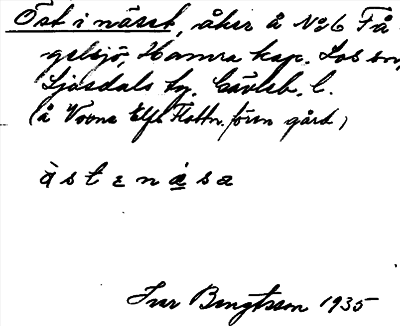 Öst i näset, åker å No 6 Få-
gelsjö, Hamra kap. Los sn,
Ljusdals tg. Gävleb. l.
(å Voona Elfs Flottn. fören gård)
Ivar Bengtsson 1935